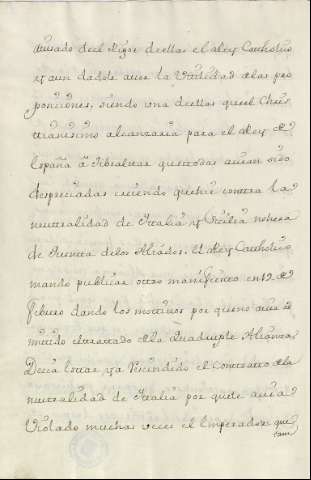 dusado deel Rigor deellas el Rey Catholico
y aun dadole aun la Variedad de las pro
posiciones, siendo una deellas que el Chris
tianisimo alcanzaria para el Rey de
españa à Gibraltar que todas auian sido
despreciadas contra la
neutralidad de Italia y Sicilia
de los Aliados. El Rey Catholico
mando publicar otro manifiesto en 19 de
febrero dando los motivos por que no auia ad
mitido el tratado de la Quadruple Alianza
Decia estar ya Rescindido el contrato de la
neutralidad de Italia por que le auia
Violado muchas veces el Emperador que
tam